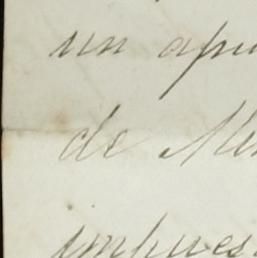 un apu
de Mi
impues